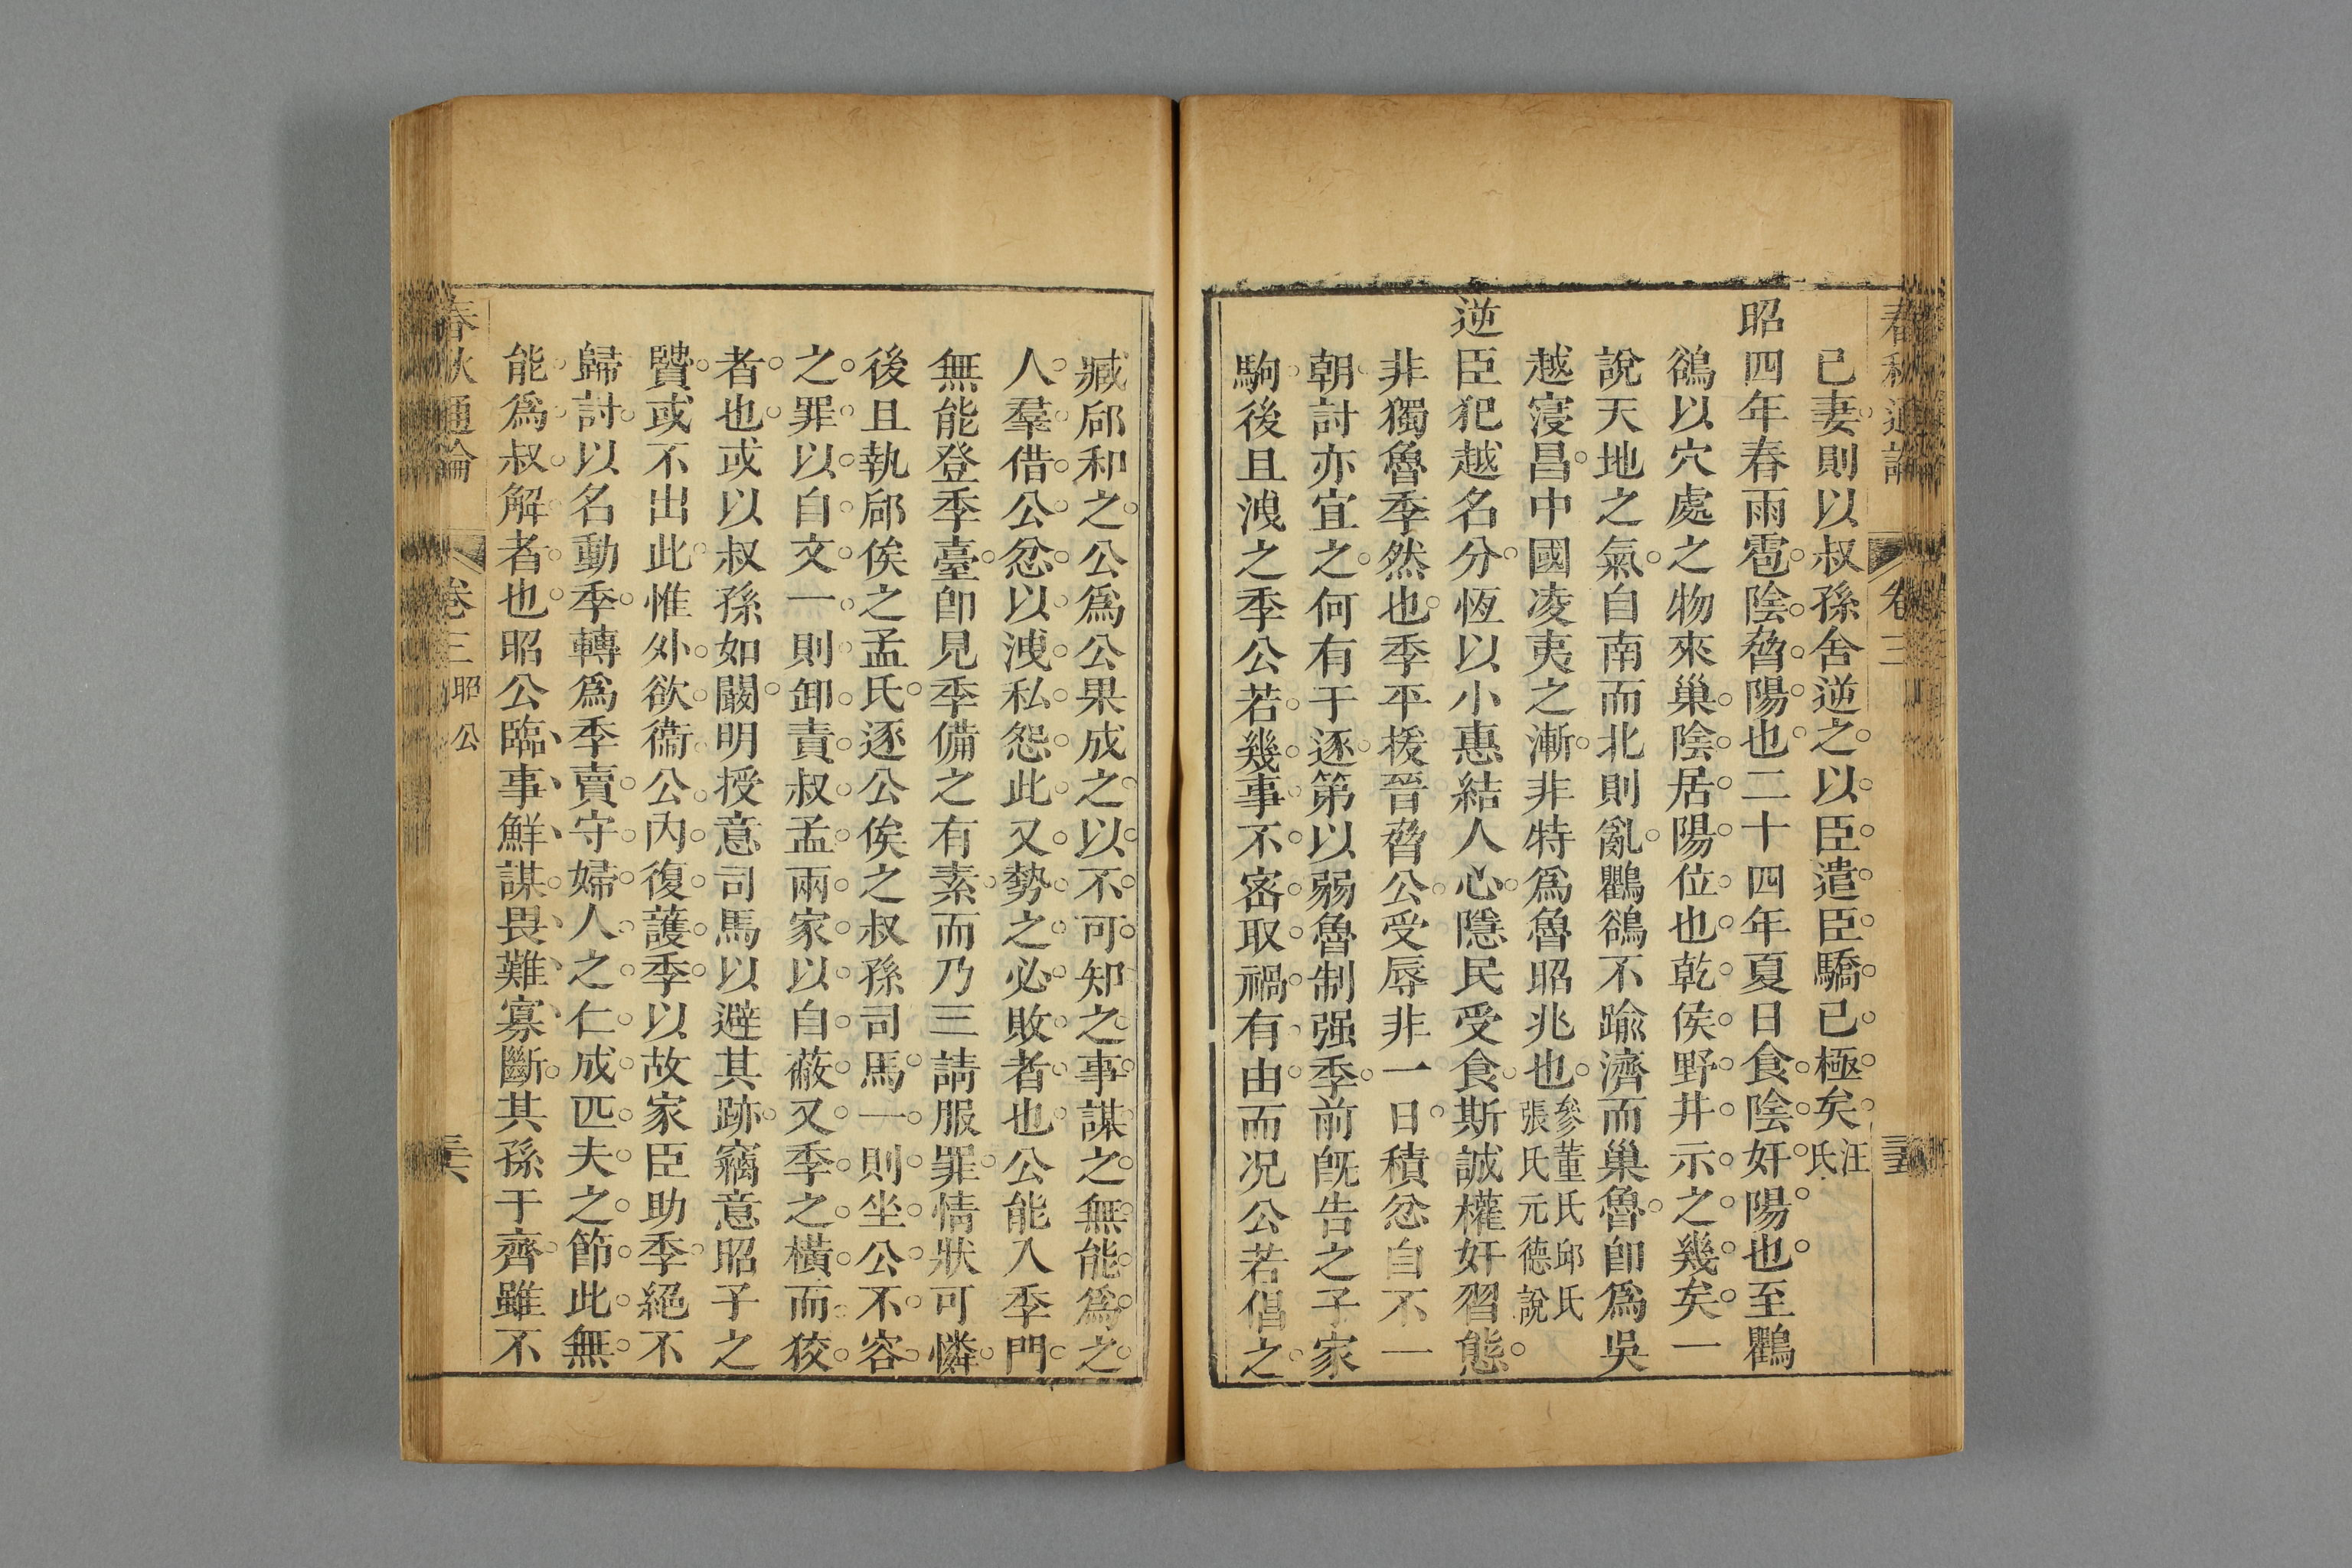 春秋通論 卷三
己妻則以叔孫舍逆之以臣遣臣驕己極矣汪氏
昭四年春雨雹陰脅陽也二十四年夏日食陰奸陽也至鸜
鵒以穴處之物來巢陰居陽位也乾侯野井示之幾矣一
說天地之氣自南而北則亂鸜鵒不踰濟而巢魯卽爲吳
越寖昌中國凌夷之漸非特爲魯昭兆也參董氏邱氏張氏元德說
逆臣犯越名分恆以小惠結人心隱民受食斯誠權奸習態
非獨魯季然也季平援晉脅公受辱非一日積忿自不一
朝討亦宜之何有于逐第以弱魯制强季前旣告之子家
駒後且洩之季公若幾事不密取禍有由而况公若倡之
臧郈和之公爲公果成之以不可知之事謀之無能爲之
人羣借公忿以洩私怨此又勢之必敗者也公能入季門
無能登季臺卽見季備之有素而乃三請服罪情狀可憐
後且執郈俟之孟氏逐公俟之叔孫司馬一則坐公不容
之罪以自文一則卸責叔孟兩家以自蔽又季之橫而狡
者也或以叔孫如闞明授意司馬以避其跡竊意昭子之
賢或不出此惟外欲衞公內復護季以故家臣助季絕不
歸討以名動季轉爲季賣守婦人之仁成匹夫之節此無
能爲叔解者也昭公臨事鮮謀畏難寡斷其孫于齊雖不
春秋通論 卷三 昭公